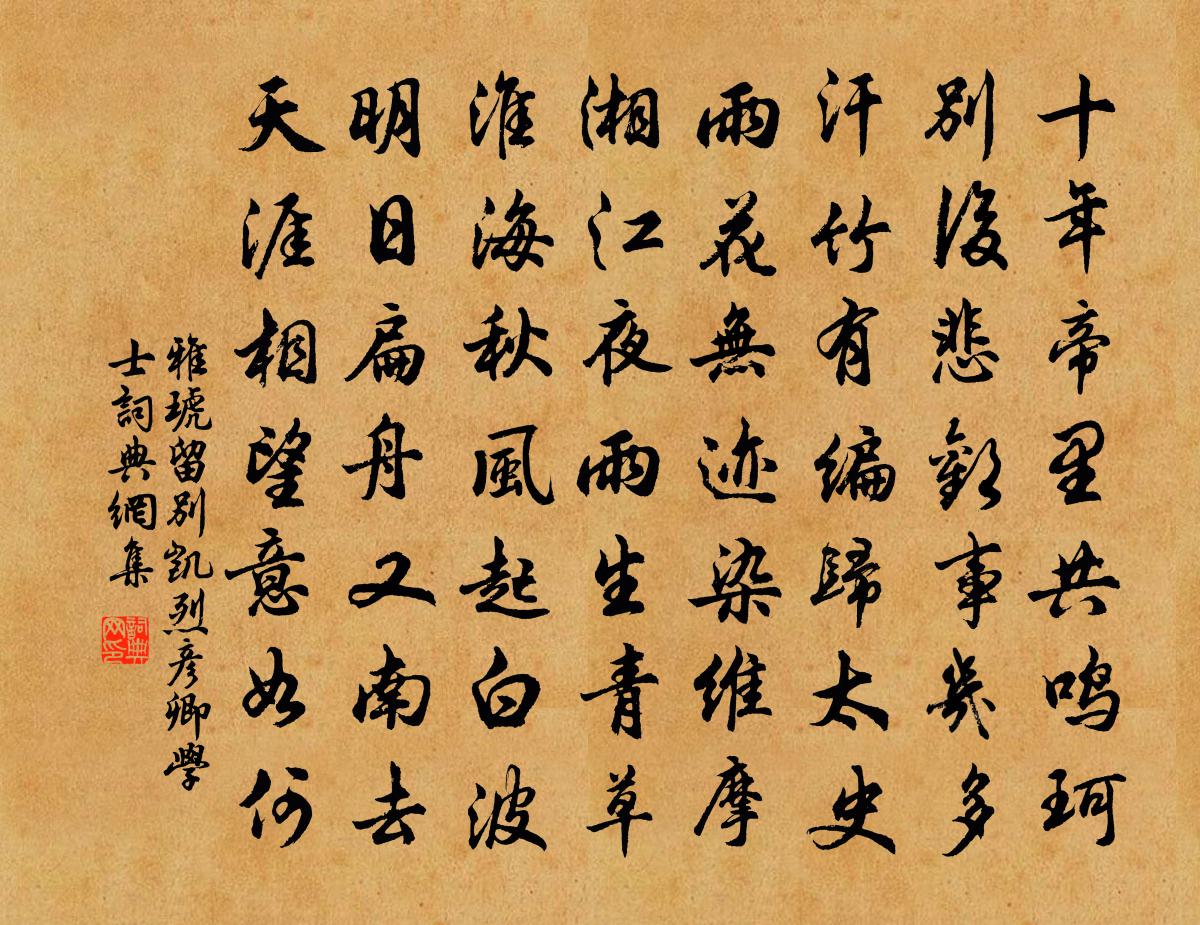 十年帝里共鸣珂
别後悲歡事幾多
汗竹有編歸太史
雨花無迹染維摩
湘江夜雨生青草
淮海秋風起白波
明日扁舟又南去
天涯相望意如何
雅琥留别凱烈彦卿學
士詞典網集
詞典网印